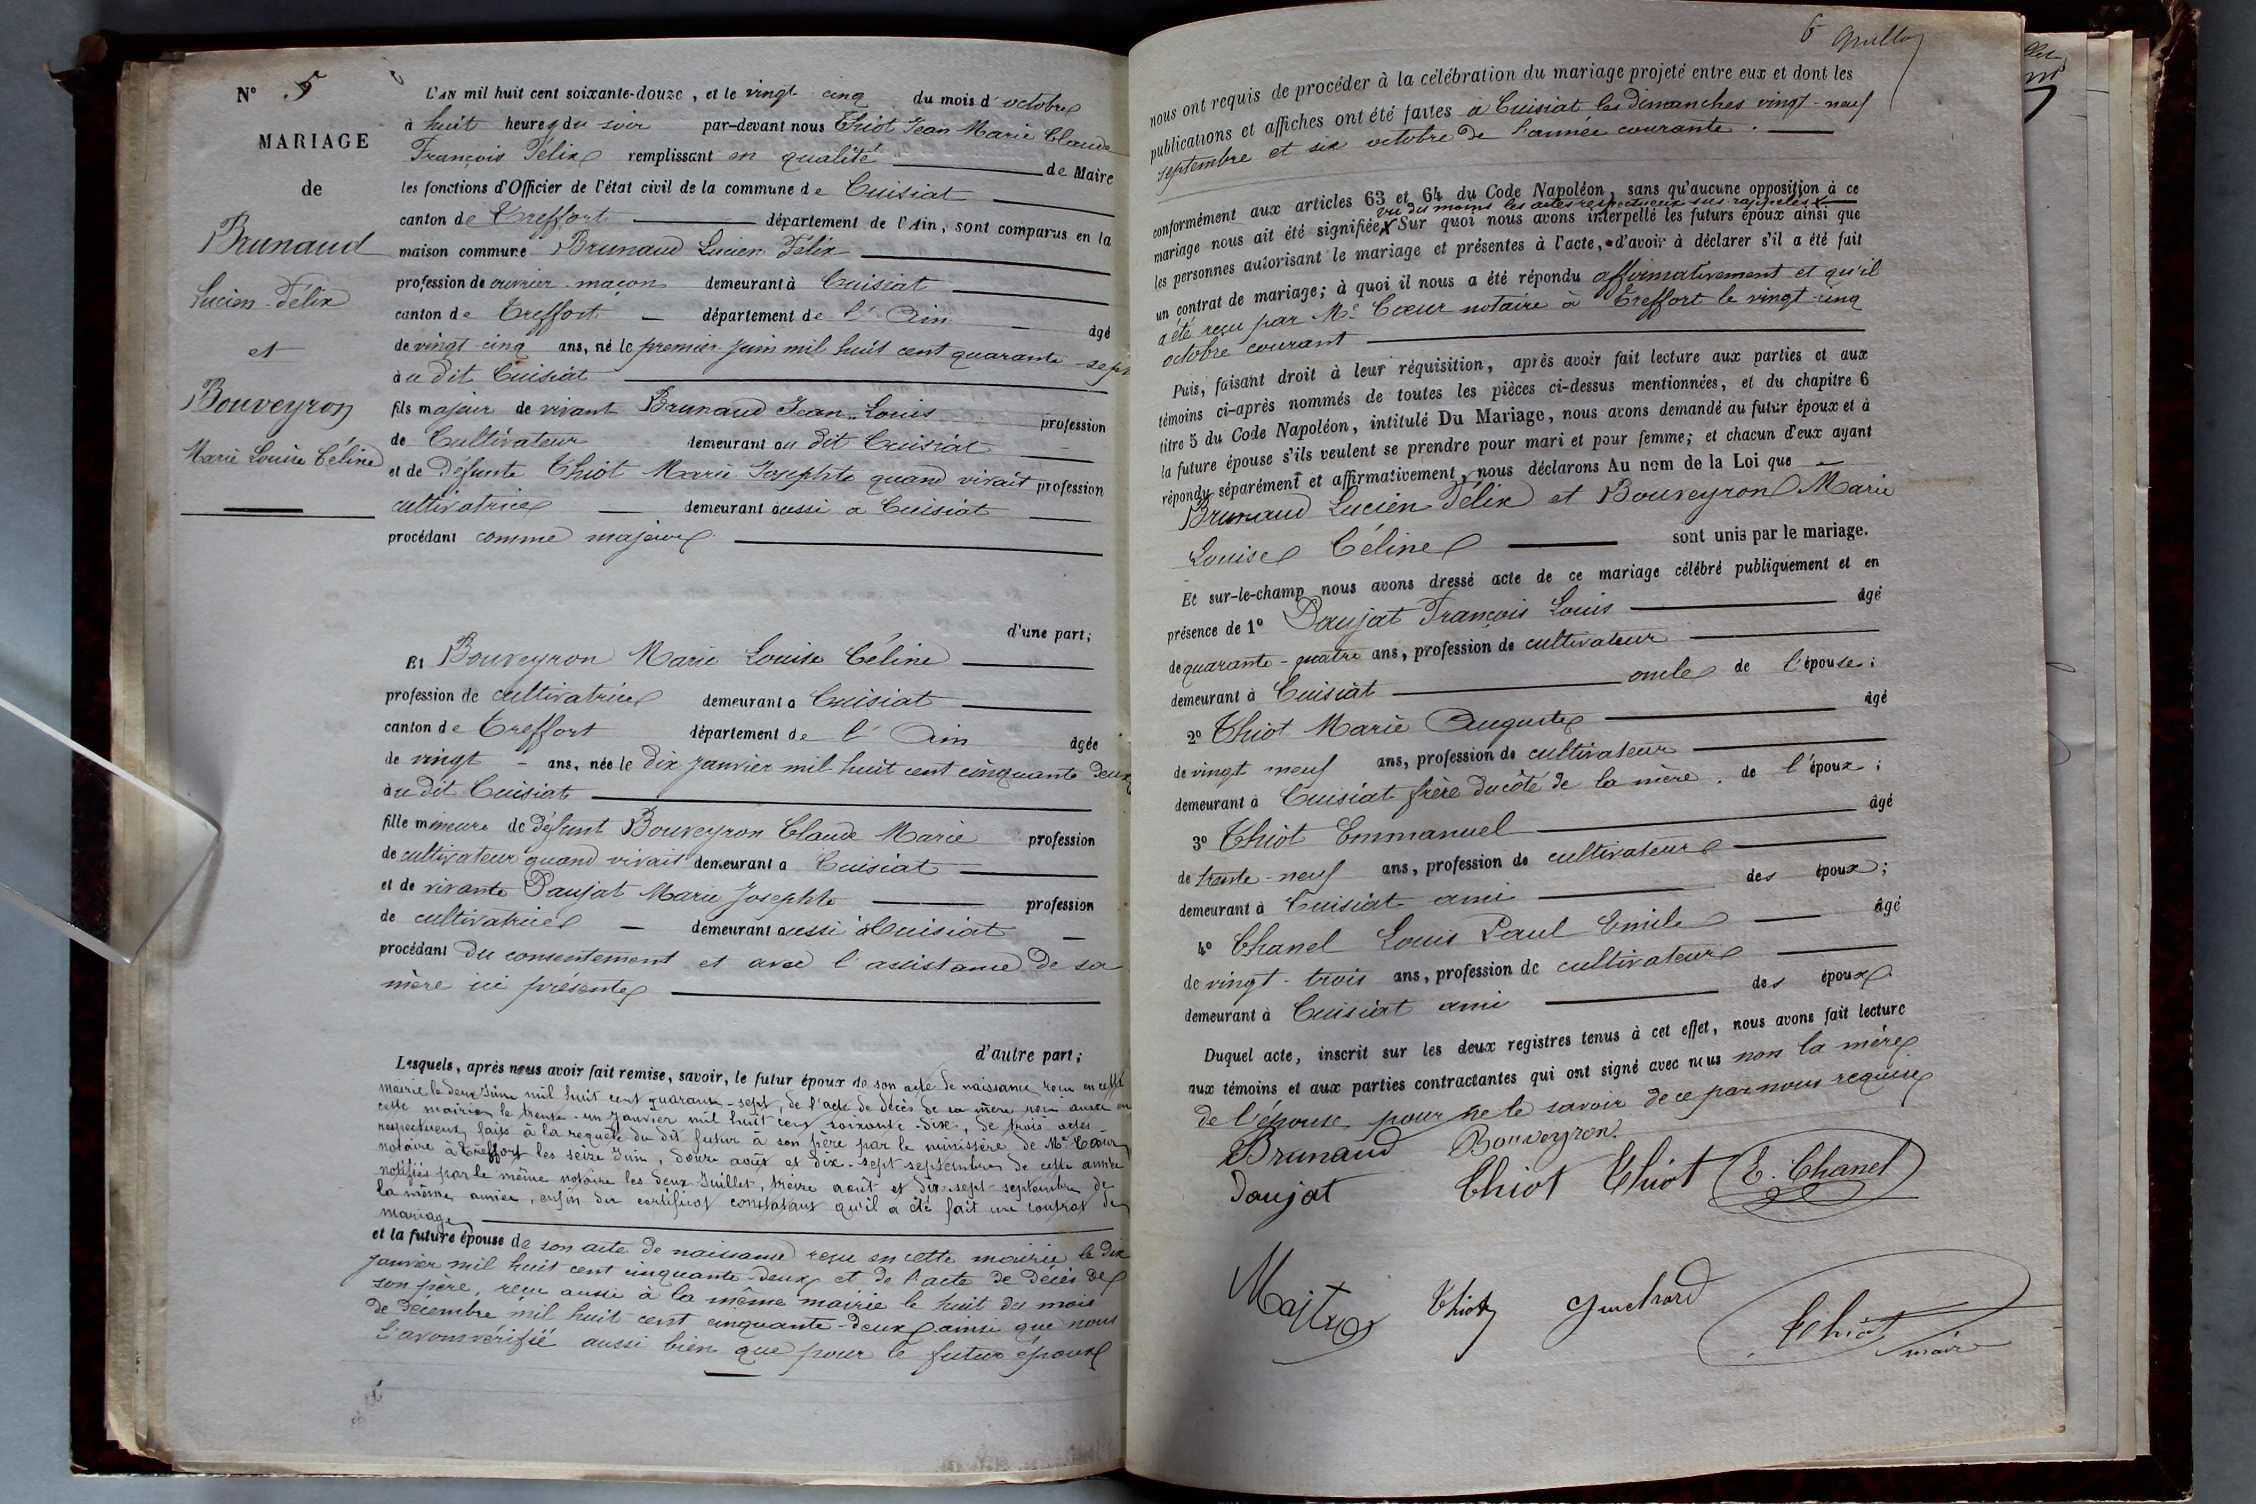 N° 5
MARIAGE
de
Brunaud
Lucien Félix
et
Bouveyron
Marie Louise Céline
L'AN mil huit cent soixante-douze, et le vingt cinq du mois d'octobre
à huit heures du soir par-devant nous Thiot Jean Marie Claude
François Félix remplissant en qualité de Maire
les fonctions d'Officier de l'état civil de la commune de Cuisiat
canton de Treffort département de l'Ain, sont comparus en la
maison commune Brunaud Lucien Félix
profession de ouvrier maçon demeurant à Cuisiat
canton de Treffort département de l'Ain âgé
de vingt cinq ans, né le premier Juin mil huit cent quarante-sept
au dit Cuisiat
fils majeur de vivant Brunaud Jean Louis profession
de Cultivateur demeurant au dit Cuisiat
et de défunte Thiot Marie Josephte quand vivait profession
cultivatrice demeurant aussi a Cuisiat
procédant comme majeur
d'une part;
Et Bouveyron Marie Louise Céline
profession de cultivatrice demeurant a Cuisiat
canton de Treffort département de l'Ain âgée
de vingt ans, née le dix janvier mil huit cent cinquante deux
au dit Cuisiat
fille mineure de défunt Bouveyron Claude Marie profession
de cultivateur quand vivait demeurant a Cuisiat
et de vivante Daujat Marie Josephte profession
de cultivatrice demeurant aussi à Cuisiat
procédant du consentement et avec l'assistance de sa
mère ici présente
d'autre part;
Lesquels, après nous avoir fait remise, savoir, le futur époux de son acte de naissance reçu en cette
mairie le deux Juin mil huit cent quarante-sept, de l'acte de décès de sa mère reçu aussi en
cette mairie le trente-un janvier mil huit cent soixante-dix, de trois actes
respectueux faits à la requête du dit futur à son père par le ministère de Me Cœur
notaire à Treffort les seize Juin, douze août et dix-sept septembre de cette année
notifiés par le même notaire les deux Juillet, treize août et dix-sept septembre de
la même année, enfin du certificat constatant qu'il a été fait un contrat de
mariage
et la future épouse de son acte de naissance reçu en cette mairie le dix
janvier mil huit cent cinquante-deux et de l'acte de décès de
son père, reçu aussi à la même mairie le huit du mois
de décembre mil huit cent cinquante-deux ainsi que nous
l'avons vérifié aussi bien que pour le futur époux
6
nous ont requis de procéder à la célébration du mariage projeté entre eux et dont les
publications et affiches ont été faites a Cuisiat les dimanches vingt-neuf
septembre et six octobre de l'année courante.
conformément aux articles 63 et 64 du Code Napoléon, sans qu'aucune opposition à ce
vu du moins les actes respectueux sus-rappelés X
mariage nous ait été signifiée X Sur quoi nous avons interpellé les futurs époux ainsi que
les personnes autorisant le mariage et présentes à l'acte, d'avoir à déclarer s'il a été fait
un contrat de mariage; à quoi il nous a été répondu affirmativement et qu'il
a été reçu par Me Cœur notaire à Treffort le vingt-cinq
octobre courant
Puis, faisant droit à leur réquisition, après avoir fait lecture aux parties et aux
témoins ci-après nommés de toutes les pièces ci-dessus mentionnées, et du chapitre 6
titre 5 du Code Napoléon, intitulé Du Mariage, nous avons demandé au futur époux et à
la future épouse s'ils veulent se prendre pour mari et pour femme; et chacun d'eux ayant
répondu séparément et affirmativement, nous déclarons Au nom de la Loi que
Brunaud Lucien Félix et Bouveyron Marie
Louise Céline sont unis par le mariage.
Et sur-le-champ nous avons dressé acte de ce mariage célébré publiquement et en
présence de 1° Daujat François Louis âgé
de quarante-quatre ans, profession de cultivateur
demeurant à Cuisiat oncle de l'épouse;
2° Thiot Marie Auguste âgé
de vingt neuf ans, profession de cultivateur
demeurant à Cuisiat frère du côté de la mère de l'époux;
3° Thiot Emmanuel âgé
de trente-neuf ans, profession de cultivateur
demeurant à Cuisiat ami des époux;
4° Chanel Louis Paul Emile âgé
de vingt-trois ans, profession de cultivateur
demeurant à Cuisiat ami des époux
Duquel acte, inscrit sur les deux registres tenus à cet effet, nous avons fait lecture
aux témoins et aux parties contractantes qui ont signé avec nous non la mère
de l'épouse pour ne le savoir de ce par nous requise
Brunaud Bouveyron
Daujat Thiot Thiot E. Chanel
Maitre Thiot Guichard Thiot
maire